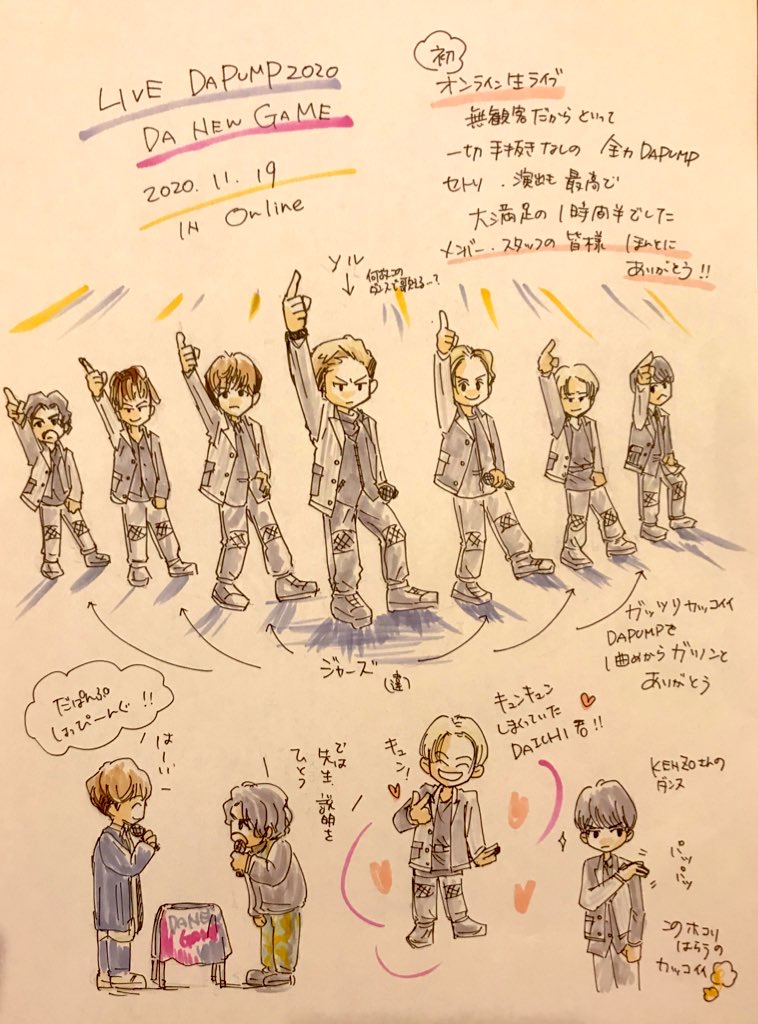 LIVE DAPUMP 2020
DA NEW GAME
2020. 11. 19
IN Online
初
オンライン生ライブ
無観客だからといって
一切手抜きなしの 全力DAPUMP
セトリ、演出も最高で
大満足の1時間半でした
メンバー・スタッフの皆様 ほんとに
ありがとう!!
↓
何故この
ダンスで歌える…?
ガッツリカッコイイ
DAPUMPで
1曲めからガツンと
ありがとう
だぱんぷ
しょっぴーんぐ!!
はーい
では
先生、説明を
ひとつ
キュン!
キュンキュン
しまくっていた
DAICHI君!!
KENZOさんの
ダンス
パッ
パッ
このホコリ
はらうの
カッコイイ
DA NEW
GAME